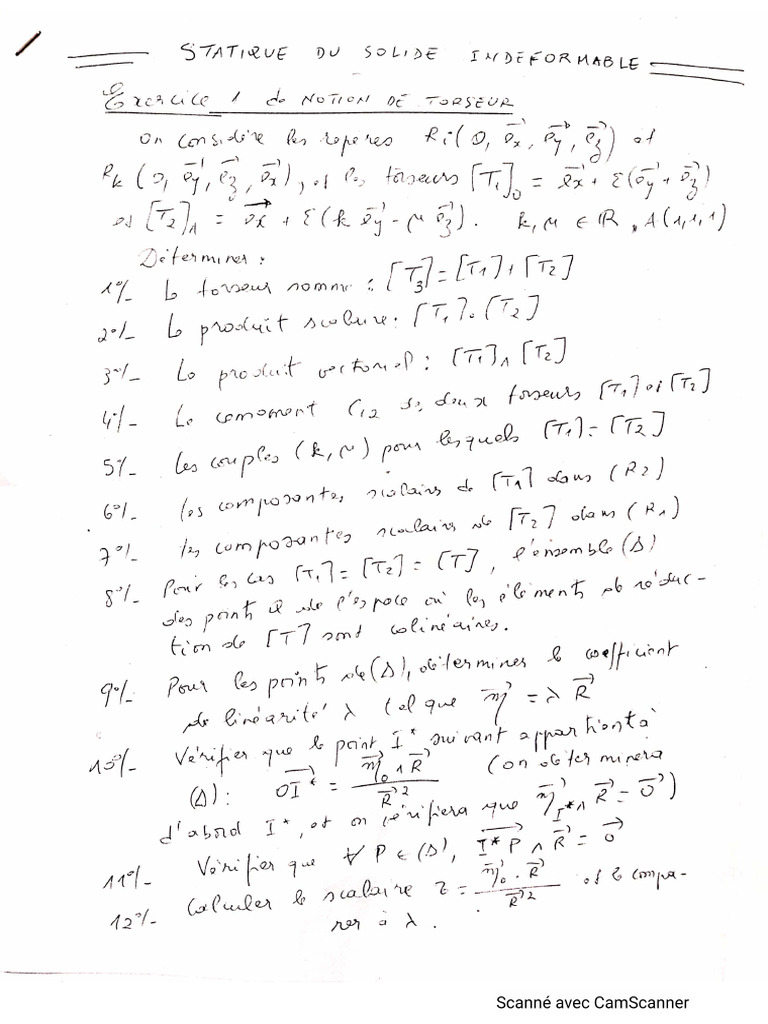 STATIQUE DU SOLIDE INDEFORMABLE
Exercice 1 de NOTION DE TORSEUR
On considère les repères Ri(O, ex, ey, ez) et
Rk(O, ey, ez, ex), et les torseurs [T1]o = ex + ε(ey + ez)
et [T2]A = ex + ε(k ey - μ ez). k, μ ∈ ℝ, A(1,1,1)
Déterminer :
1°/- Le torseur somme : [T3] = [T1] + [T2]
2°/- Le produit scalaire : [T1] . [T2]
3°/- Le produit vectoriel : [T1] ∧ [T2]
4°/- Le comoment C12 de deux torseurs [T1] et [T2]
5°/- Les couples (k, μ) pour lesquels [T1] = [T2]
6°/- les composantes scalaires de [T1] dans (R2)
7°/- les composantes scalaires de [T2] dans (R1)
8°/- Pour les cas [T1] = [T2] = [T], l'ensemble (Δ)
des points de l'espace où les éléments de réduc-
tion de [T] sont colinéaires.
9°/- Pour les points de (Δ), déterminer le coefficient
de linéarité λ tel que η = λ R
10°/- Vérifier que le point I* suivant appartient à
(Δ) : OI* = ηo ∧ R / R² (on déterminera
d'abord I*, et on vérifiera que ηI* ∧ R = 0)
11°/- Vérifier que ∀ P ∈ (Δ), I*P ∧ R = 0
12°/- Calculer le scalaire z = ηo . R / R² et le compa-
rer à λ.
Scanné avec CamScanner